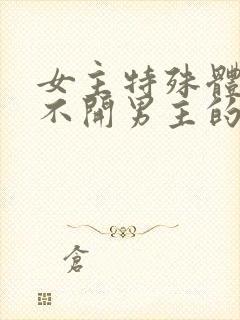 女主特殊體
不開男主的
倉